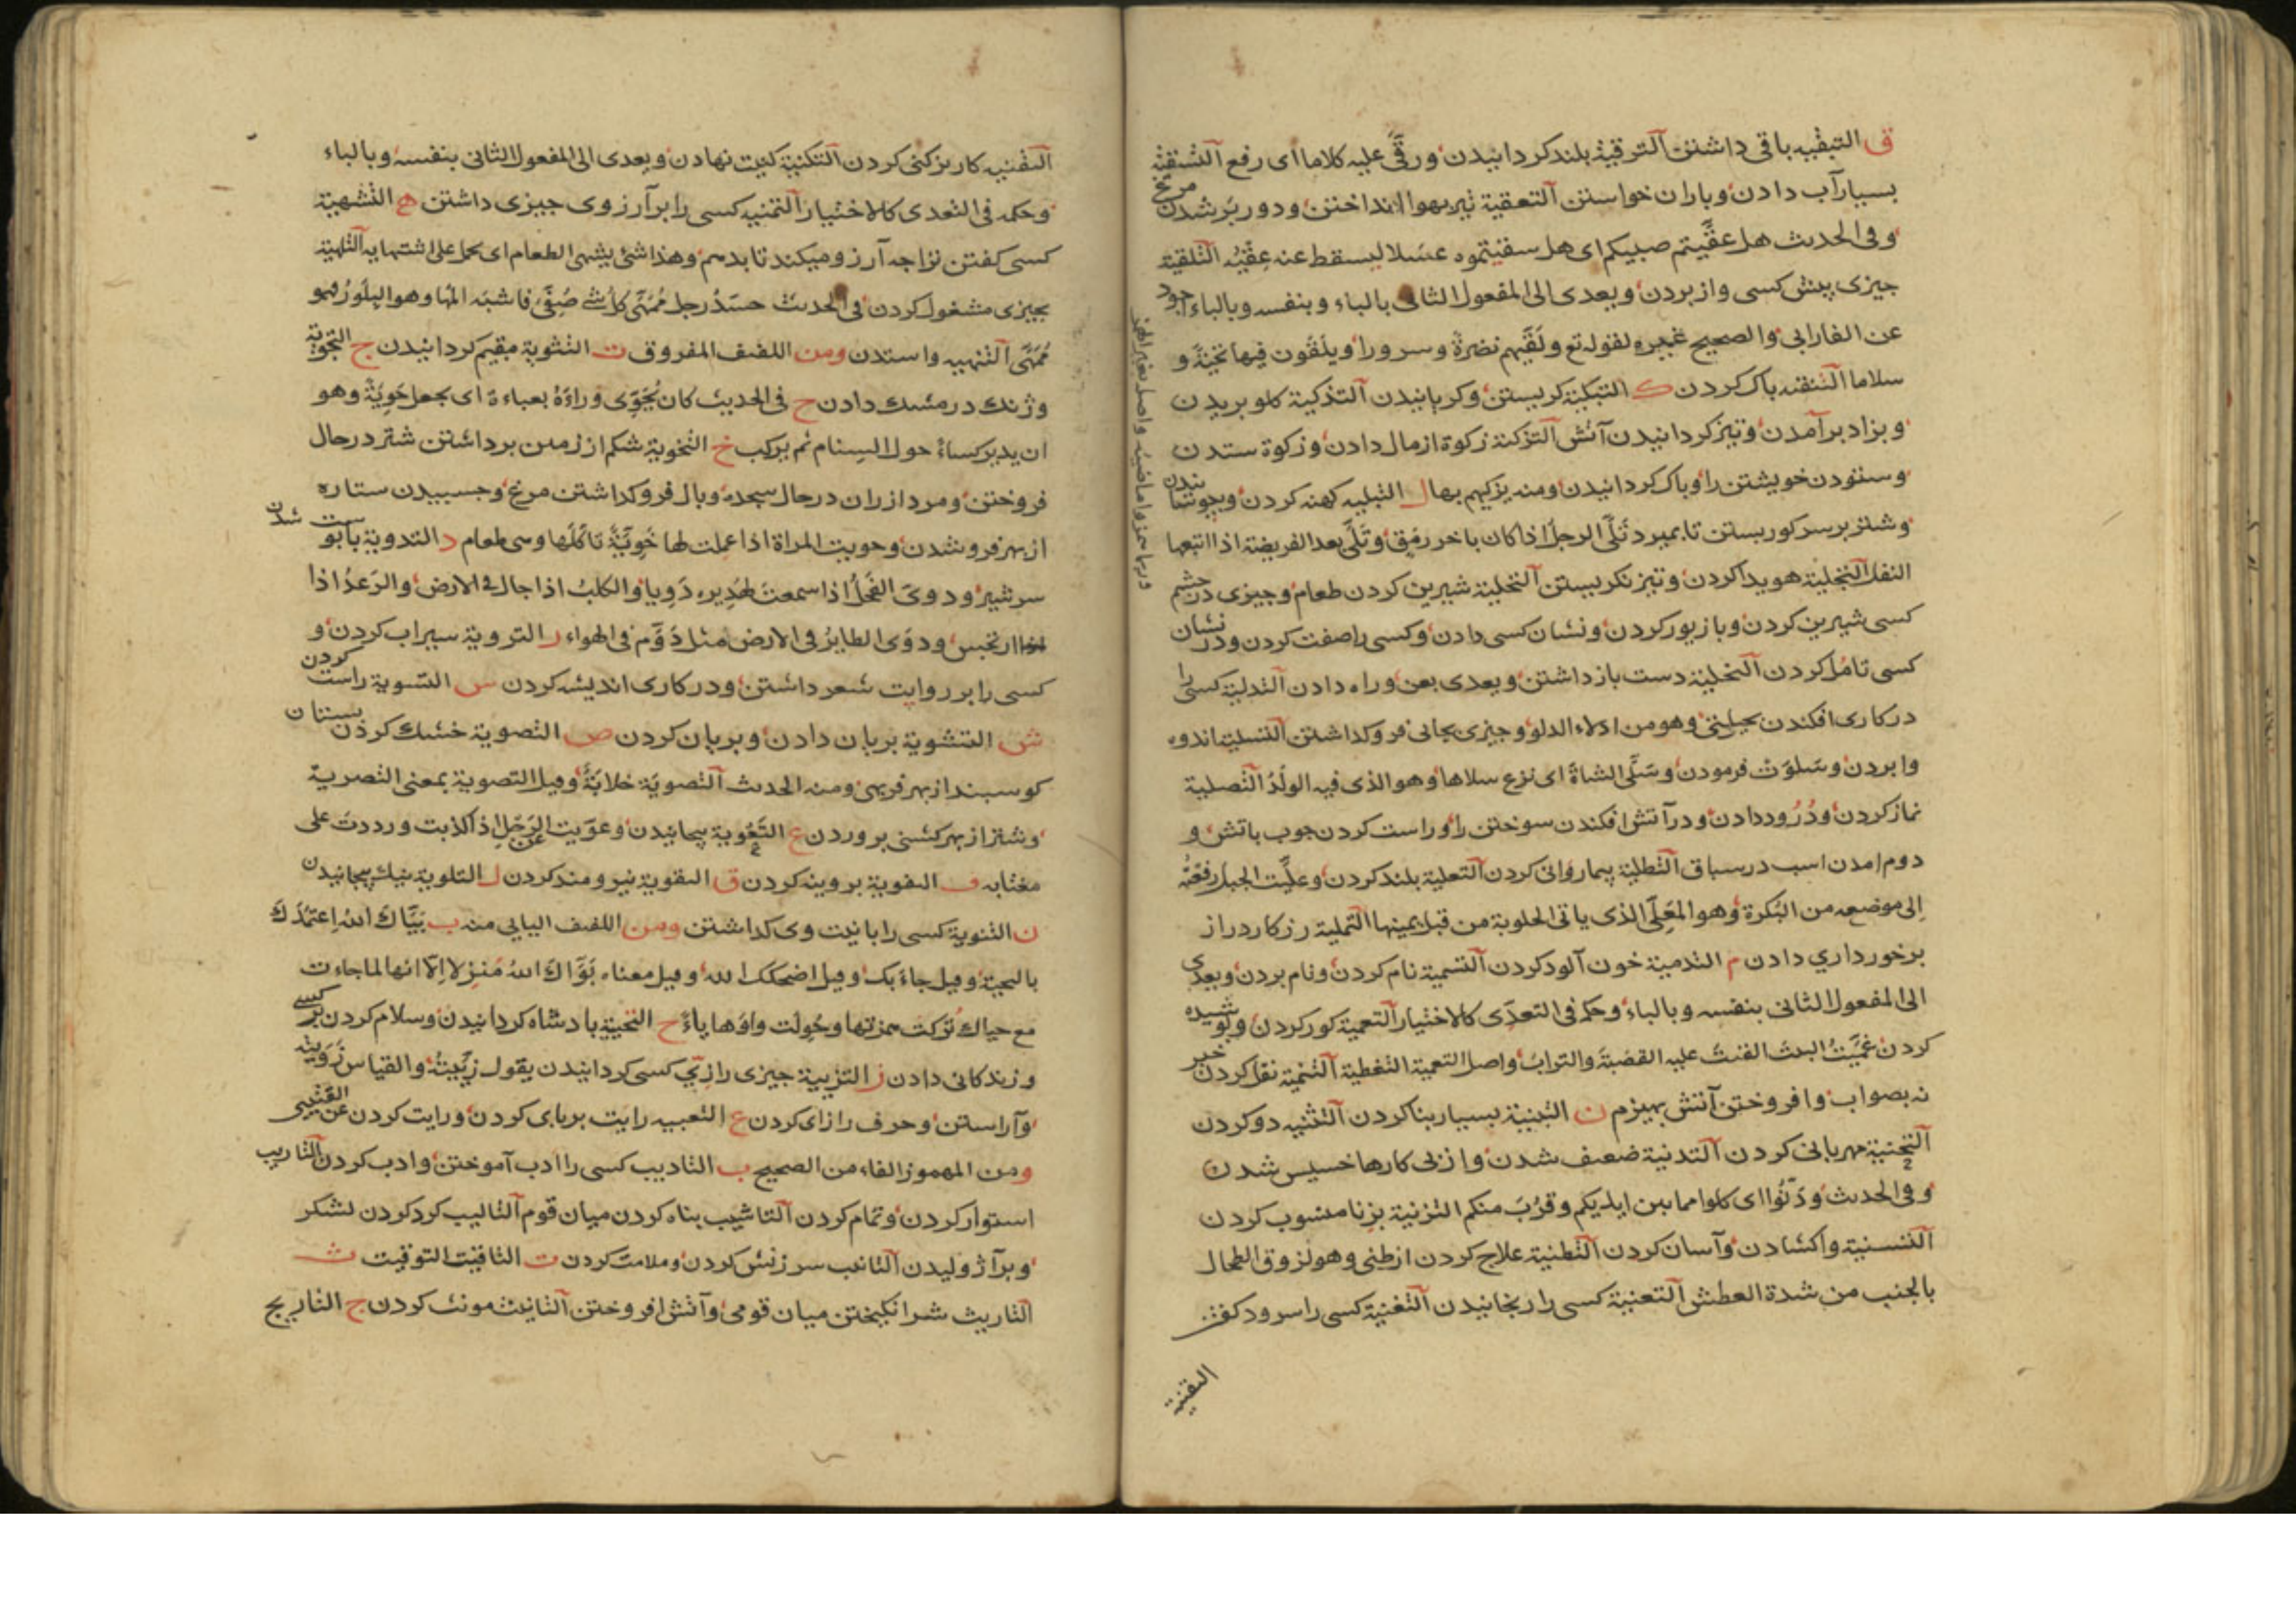 ق التبقیه باقی داشتن الترقیة بلند کردانیدن ورقّی علیه کلاما ای رفع التسقیة
بسیار آب دادن وباران خواستن التعقیة تیر بهوا انداختن ودور بر شدن مرغ
وفی الحدیث هل عقّیتم صبیکم ای هل سقیتموه عسلا لیسقط عنه عقیه التلقیة
جیزی پیش کسی واز بردن ویعدی الی المفعول الثانی بالباء وبنفسه وبالباء اجود
عن الفارابی والصحیح غیره لقوله تع ولقّیهم نضرة وسرورا ویلقّون فیها تحیّة و
سلاما التنقیه باک کردن ک التبکیة کریستن وکریانیدن التذکیة کلو بریدن
وبزاد برآمدن وتیز کردانیدن آتش التزکیة زکوة از مال دادن وزکوة ستدن
وستودن خویشتن را وباک کردانیدن ومنه یزکیهم بها ل التبلیه کهنه کردن
وشتر بر سر کور بستن تا بمیرد تلّی الرجل اذا کان باخر رمق وتلّی بعد الفریضة اذا اتبعها
النفل التجلیة هویدا کردن وتیز نکریستن التحلیة شیرین کردن طعام وجیزی در چشم
کسی شیرین کردن وبا زیور کردن ونشان کسی دادن وکسی را صفت کردن ودر نشان
کسی تامل کردن التخلیة دست بازداشتن ویعدی بعن وراه دادن التدلیة کسی را
در کاری افکندن بحیلتی وهو من ادلاء الدلو وجیزی بجائی فروکداشتن التسلیة اندوه
وابردن وسلوت فرمودن وسلّی الشاة ای نزع سلاها وهو الذی فیه الولد التصلیة
نماز کردن ودرود دادن ودر آتش افکندن سوختن را وراست کردن جوب باتش و
دوم امدن اسب در سباق التطلیة بیماروانی کردن التعلیة بلند کردن وعلّیت الحبل رفعته
الی موضعه من البکرة وهو المعلّی الذی یاتی الحلوبة من قبل یمینها التملیة رزکار دراز
برخورداری دادن م التدمیة خون آلود کردن التسمیة نام کردن ونام بردن ویعدی
الی المفعول الثانی بنفسه وبالباء وحکمه فی التعدی کالاختیار التعمیة کور کردن وپوشیده
کردن عمّیت البیت علیه القصبة والتراب واصل التعمیة التغطیة التنمیة نقل کردن خبر
نه بصواب وافروختن آتش بهیزم ن التبنیة بسیار بنا کردن التثنیه دو کردن
التحنیة مهربانی کردن التدنیة ضعیف شدن واز پی کارها خسیس شدن
وفی الحدیث ودنّوا ای کلوا مما بین ایدیکم وقرب منکم التزنیة بزنا منسوب کردن
التسنیة واکشادن وآسان کردن التطنیة علاج کردن از طنی وهو لزوق الطحال
بالجنب من شدة العطش التعنیة کسی را رنجانیدن التغنیة کسی را سرود کفتن
التقنیة
التقنیه کاریز کنی کردن التکنیة کنیت نهادن ویعدی الی المفعول الثانی بنفسه وبالباء
وحکمه فی التعدی کالاختیار التمنیه کسی را بر آرزوی جیزی داشتن ه التشهیة
کسی کفتن ترا جه آرزو میکند تا بدهم وهذا شئ یشهّی الطعام ای یحمل علی اشتهایه التلهیة
بجیزی مشغول کردن فی الحدیث جسد رجل ممهّی کل شئ صفّی فاشبه المها وهو البلور فهو
ممهّی التنهیه وا ستدن ومن اللفیف المفروق ث التثویة مقیم کردانیدن ج التجویة
وژنک در مشک دادن ح فی الحدیث کان یحوّی وراءه بعباءة ای یجعل حویّة وهو
ان یدیر کساء حول السنام ثم یرکب خ التخویة شکم از زمین برداشتن شتر در حال
فروختن ومرد از ران در حال سجده وبال فروکداشتن مرغ وجسبیدن ستاره
از بهر فروشدن وخویت المراة اذا عملت لها خویّة تاکلها وهی طعام د التدویة
سر شیر ودوّی الفحل اذا سمعت لهدیره دویا والکلب اذا جال فی الارض والرعد اذا
ارتجس ودوّی الطایر فی الارض مثل دوّم فی الهواء ر الترویة سیراب کردن و
کسی را بر روایت شعر داشتن ودر کاری اندیشه کردن س التسویة راست کردن
ش التشویة بریان دادن وبریان کردن ص التصویة خشک کردن پستان
کوسبند از بهر فربهی ومنه الحدیث التصویة خلابة وقیل التصویة بمعنی التصریة
وشتر از بهر کشنی بروردن ع التعویة پیچانیدن وعوّیت عن الرجل اذا کذبت ورددت علی
مغتابه ف التفویة بروینه کردن ق التقویة نیرومند کردن ل التلویة نیک پیچانیدن
ن التنویة کسی را با نیت وی کداشتن ومن اللفیف الیایی منه ب بیّاک الله اعتمدک
بالتحیة وقیل جاء بک وقیل اضحکک الله وقیل معناه بوّاک الله منزلا الا انها لما جاءت
مع حیاک ترکت همزتها وحولت واوها یاء ح التحیة بادشاه کردانیدن وسلام کردن بر کسی
وزندکانی دادن ز التزییة جیزی را زیّ کسی کردانیدن یقول زیّیته والقیاس زوّیته
وآراستن وحرف را زای کردن ع التعییه رایت بربای کردن ورایت کردن عن القتیبی
ومن المهموز الفاء من الصحیح ب التادیب کسی را ادب آموختن وادب کردن التاریب
استوار کردن وتمام کردن التاشیب بناه کردن میان قوم التالیب کرد کردن لشکر
وبرآژولیدن التانیب سرزنش کردن وملامت کردن ت التاقیت التوقیت ث
التاریث شر انکیختن میان قومی وآتش افروختن التانیث مونث کردن ج التاریج